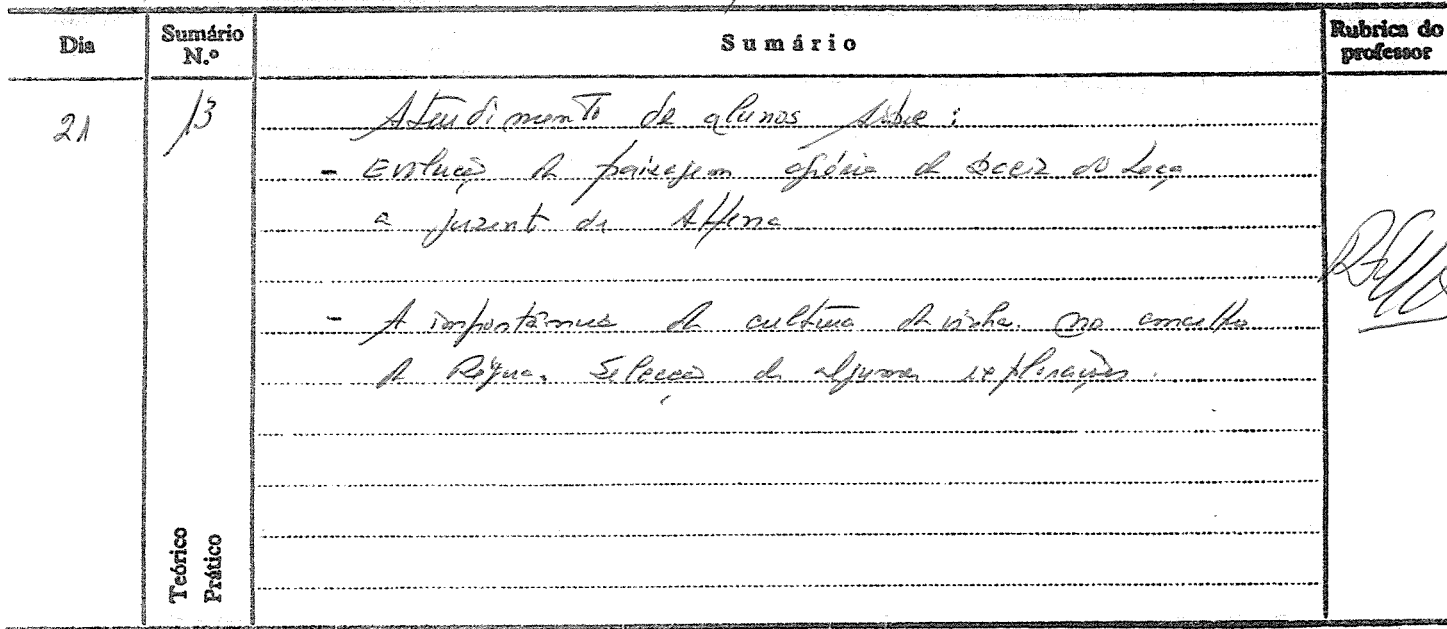 Dia
Sumário N.º
Sumário
Rubrica do professor
21
13
Atendimento de alunos sobre:
- Evolução da paisagem agrária da bacia do Leça
a juzante de Alfena
- A importância da cultura da vinha no concelho
da Régua. Selecção de algumas explorações.
Teórico
Prático